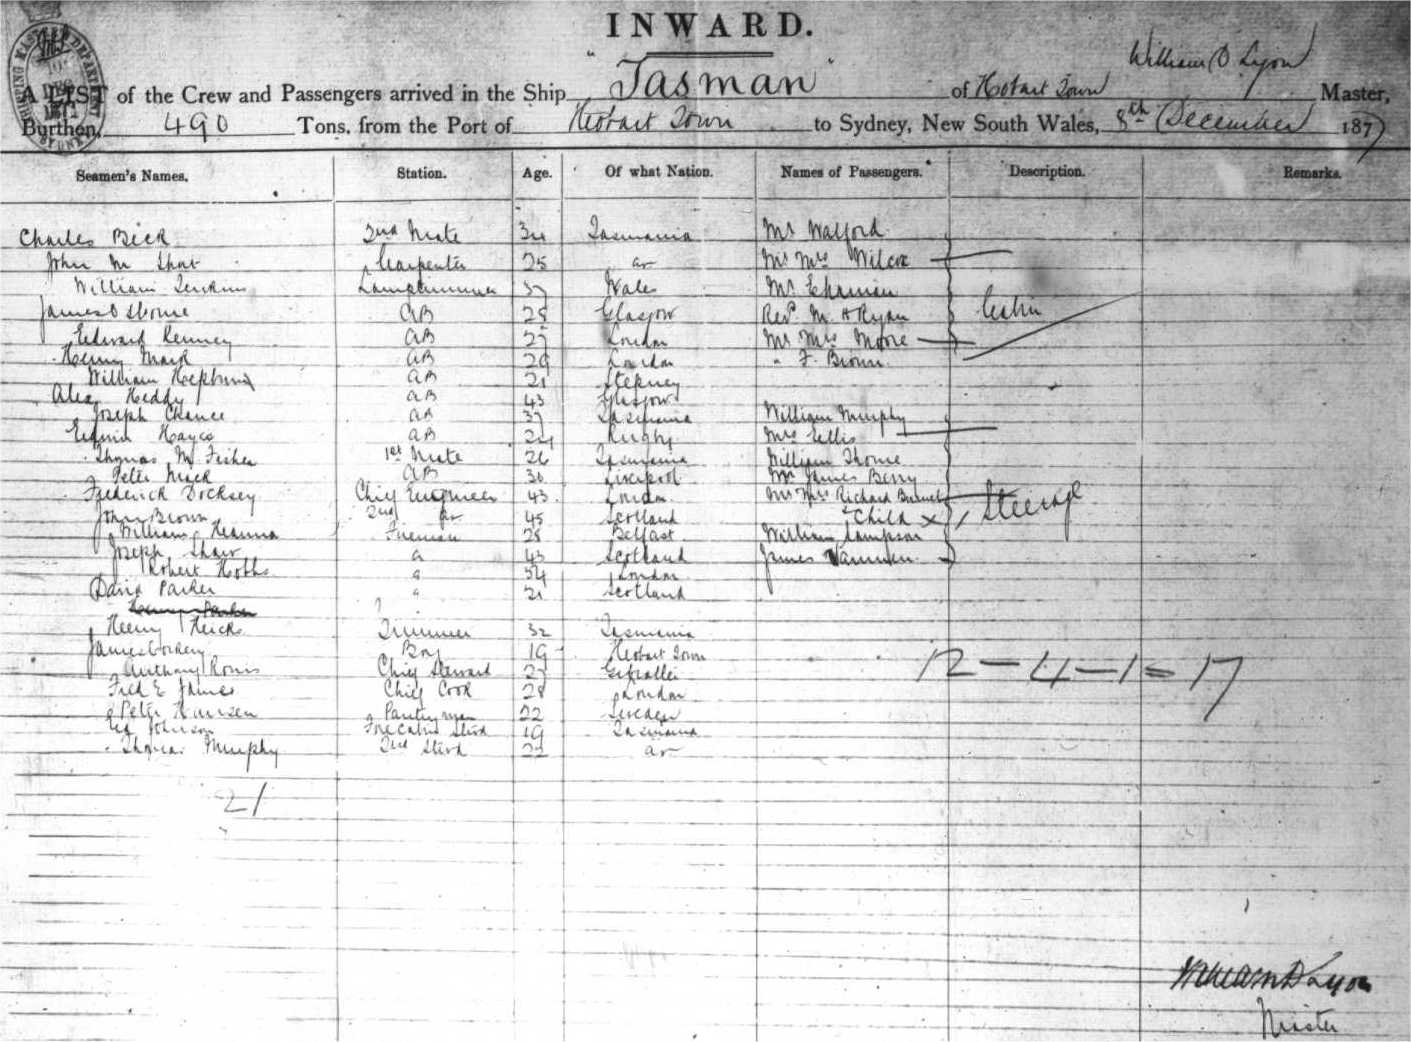 INWARD.
A LIST of the Crew and Passengers arrived in the Ship "Tasman" of Hobart Town William D Lyon Master,
Burthen, 490 Tons, from the Port of Hobart Town to Sydney, New South Wales, 8th December 1877
Seamen's Names. Station. Age. Of what Nation. Names of Passengers. Description. Remarks.
Charles Bick 2nd Mate 34 Tasmania Mr Walford
John M Carpenter 25 Mr Mrs Wilcox
William Jenkins Lamptrimmer 37 Wales Mr
James Osborne AB 25 Glasgow Revd M A Ryan Cabin
Edward Kenney AB 27 London Mr Mrs Moore
Henry Mark AB 29 London " F. Brown
William AB 21 Stepney
Alex Heddy AB 43 Glasgow
Joseph Chance AB 37 Tasmania William Murphy
Edwin Hayes AB 24 Rugby Mrs Ellis
Thomas M Fisher 1st Mate 26 Tasmania William Thorne
Peter Mack AB 30 Liverpool Mr James Berry
Frederick Docksey Chief Engineer 43 London Mr Mrs Richard
John Brown 2nd 45 Scotland Child x Steerage
William Hanna Fireman 28 Belfast William Sampson
Joseph Shaw 43 Scotland James
Robert Hobbs 34 London
David Parker 21 Scotland
Henry Hicks Trimmer 32 Tasmania
James Boy 19 Hobart Town
Anthony Chief Steward 27
Fred E James Chief Cook 28 London
Peter Hansen Pantryman 22 Sweden
Johnson Forecabin Stwd 19 Tasmania
Thomas Murphy 2nd Stwd 22
12 - 4 - 1 = 17
21
William D Lyon
Master